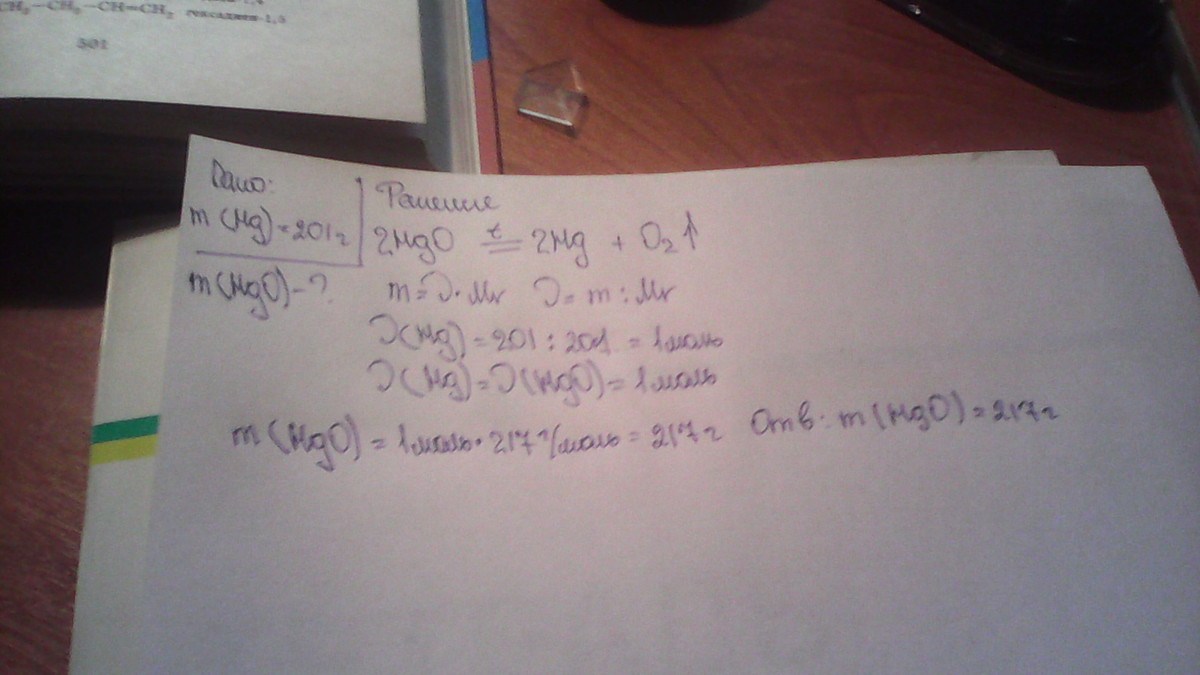 CH₂—CH₂—CH=CH₂ гексадиен-1,5
501
Дано:
m (Hg) = 201 г
m (HgO) - ?
Решение
2HgO t= 2Hg + O₂↑
m = υ · Mr υ = m : Mr
υ(Hg) = 201 : 201 = 1 моль
υ(Hg) = υ(HgO) = 1 моль
m (HgO) = 1 моль · 217 г/моль = 217 г Отв: m (HgO) = 217 г